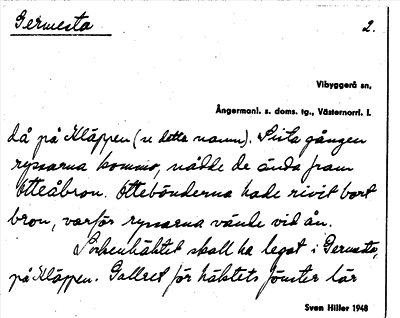 Germesta 2.
Vibyggerå sn,
Ångermanl. s. doms. tg., Västernorrl. l.
då på Kläppen (se detta namn). Sista gången
ryssarna kommo, nådde de ända fram
Utteåbron. Uttebönderna hade rivit bort
bron, varför ryssarna vände vid ån.
Sockenhäktet skall ha legat i Germesta,
på Kläppen. Gallret för häktets fönster lär
Sven Hiller 1948